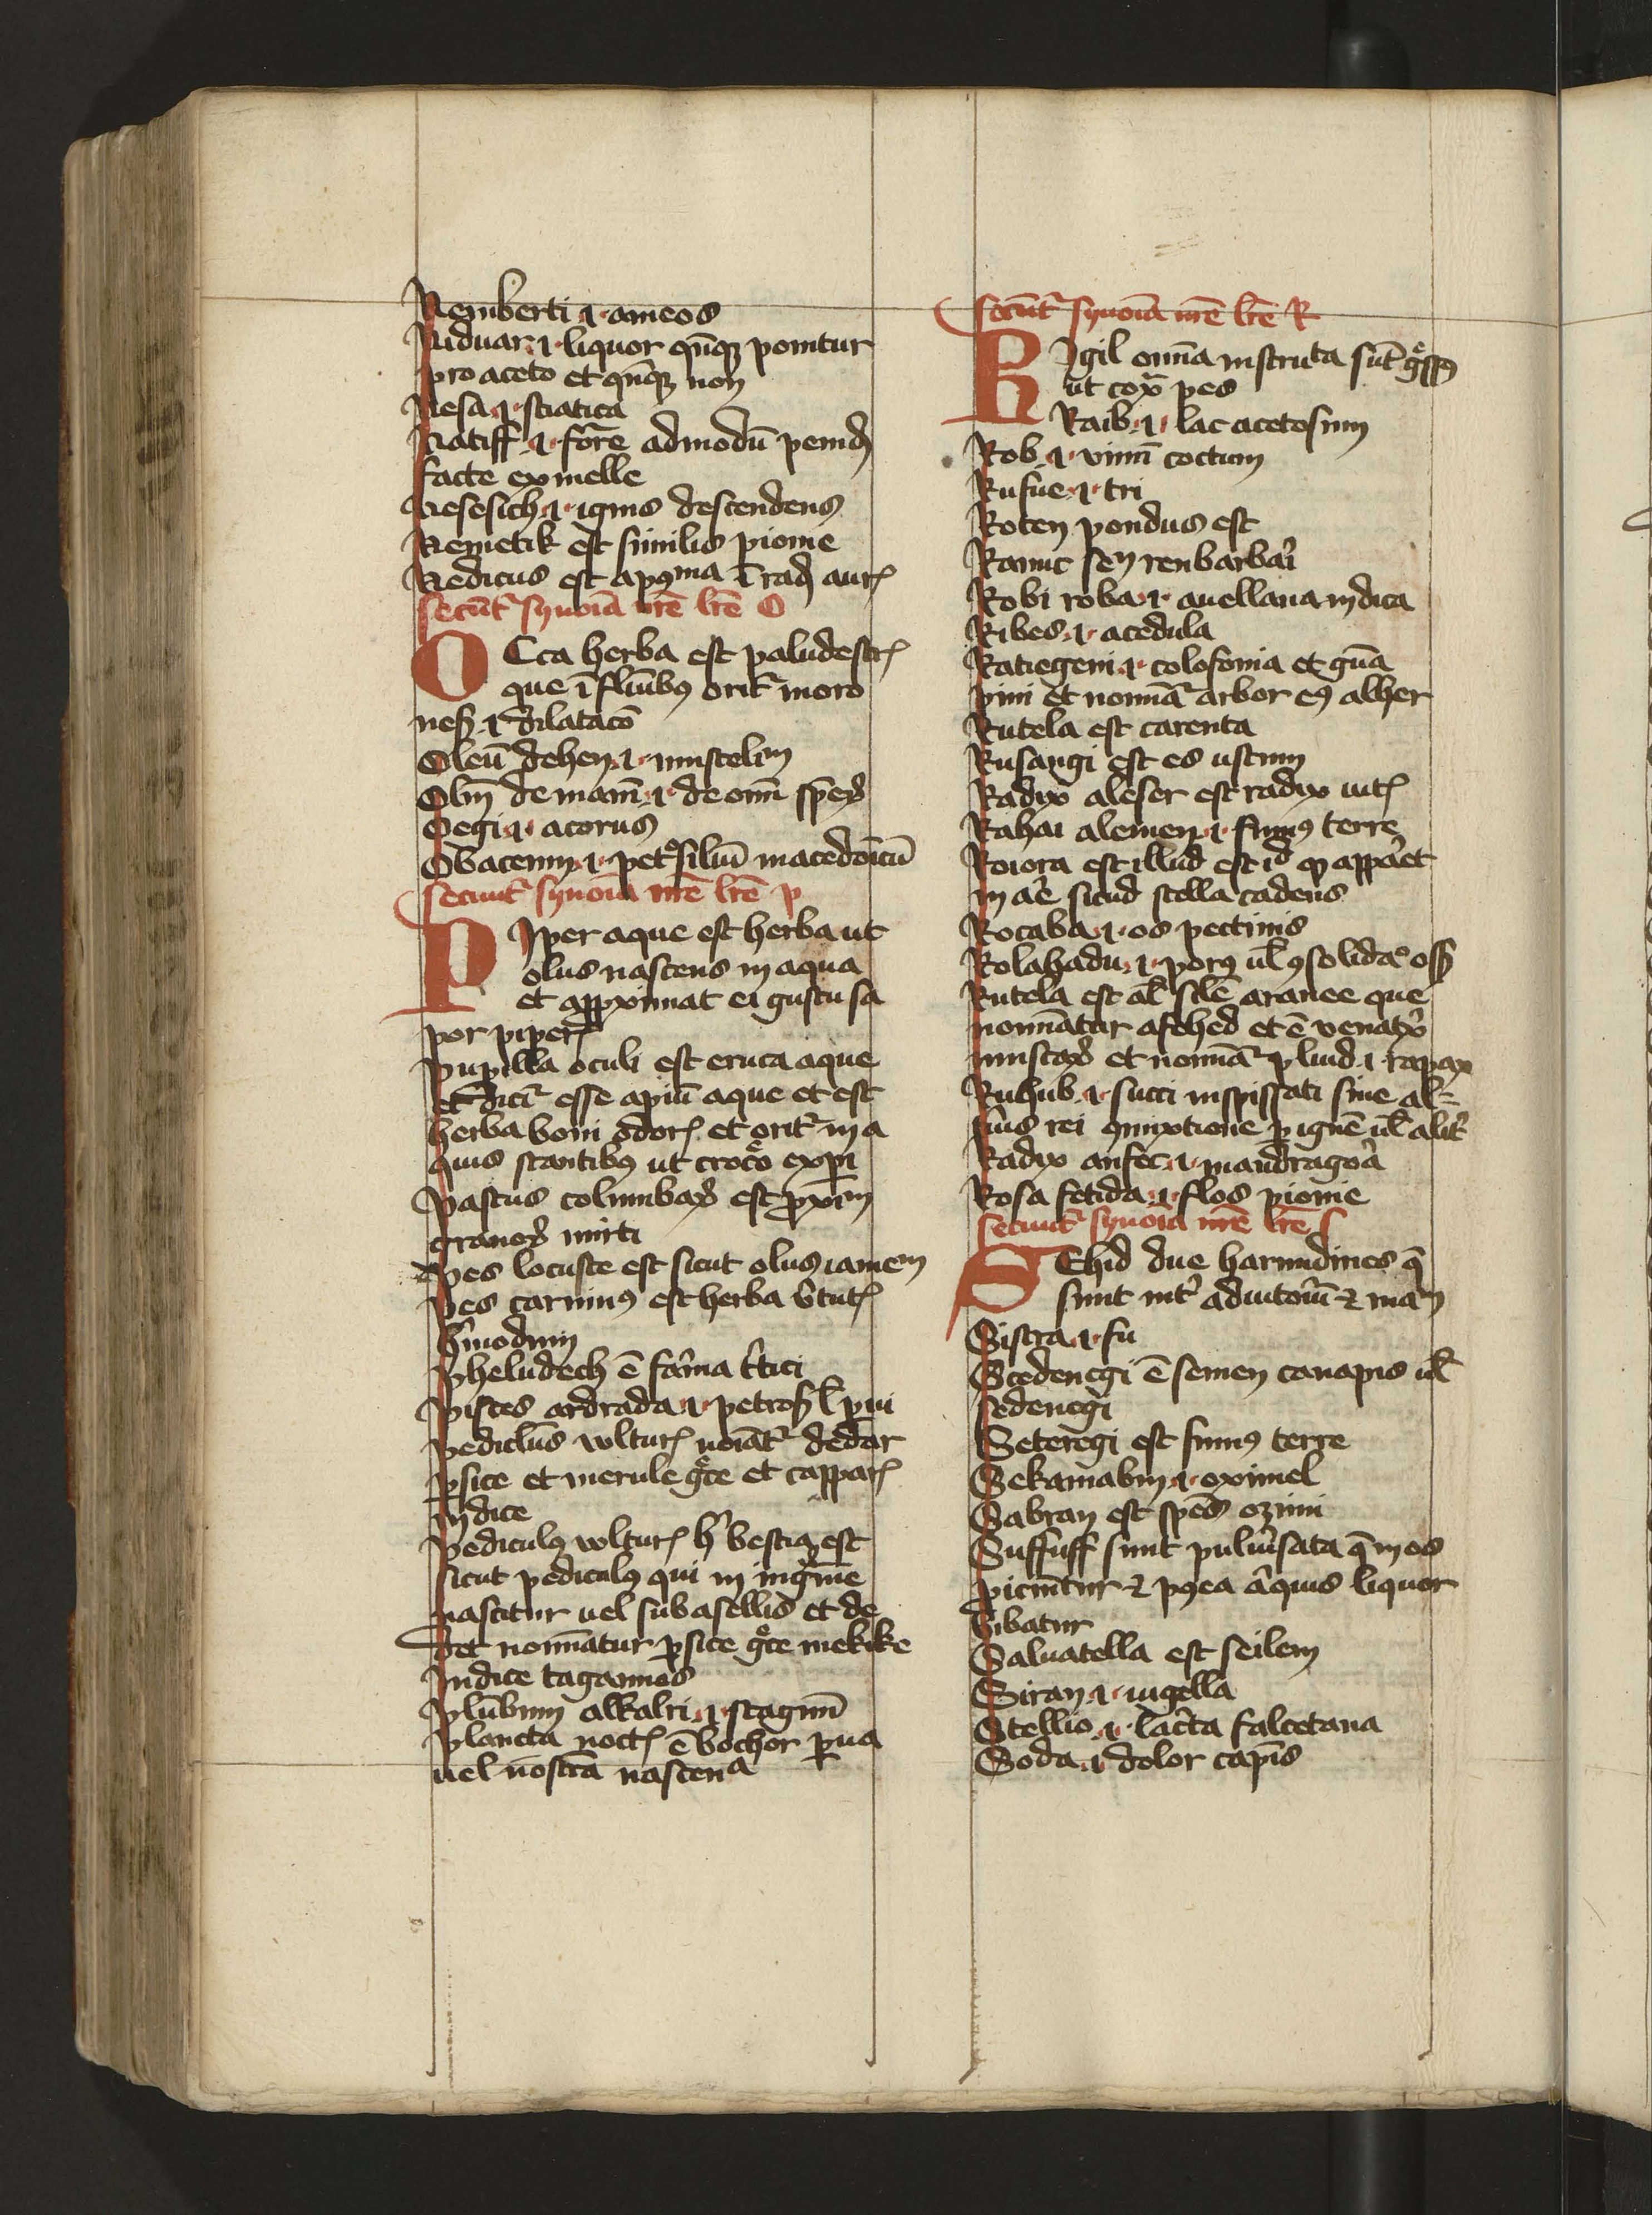 Nemberti .i. ameos
Niduar .i. liquor qn̄qꝫ ponitur
pro aceto et qn̄qꝫ non
Nesa .i. sciatica
Natiff .i. for̄e admodū penid̄
facte ex melle
Nesesich .i. ignis descendens
Nemetik est similis pionie
Nedicus est apꝰma ī rad̄ aurꝭ
Secūtʳ synoīa nr̄e lr̄e O
OCca herba est paludestrꝭ
que ī flūibꝰ oritʳ moro
nes .i. dilatacō
Oleū dehen .i. muscelin
Olm̄ de mani .i. de omī spēꝝ
Oegi .i. acorus
Obacenim .i. petᵒsilinū macedoīcū
Secuntʳ synoīa nr̄e lr̄e p
PIper aque est herba ut
olus nascens in aqua
et apꝓximat ei gustu sa
por piperꝭ
Pupilla oculi est eruca aque
et dicitʳ esse apiū aque et est
herba boni odorꝭ et oritʳ in a
quis stantibꝰ ut croco exp̄i
Pastus columbaꝝ est ꝓxim
granoꝝ mirti
Pes locuste est sicut olus iamen
Pes carninꝰ est herba v̄tutꝭ
h̓modnm
Pheludech ē farina tͥtici
Pisces ardrada .i. petros̄ l̄ pini
Pediculus vlturꝭ noīatʳ dedar
ꝑsice et merule gͤce et capparꝭ
indice
Pediculꝰ vlturꝭ h̓ bestia est
sicut pediculꝰ qui in ingͥne
nascitur uel sub asellis et de
det nominatur ꝑsice gͤce mekike
Indice tagannes
Plūbum alkalri .i. stagnū
Plancta noctꝭ ē bothor ꝑua
uel nostra nascena
Secūtʳ synoīa nr̄e lr̄e R
RIgil omīa instruta sūt
ut cox̄ pes
Raib .i. lac acetosum
Rob .i. vinū coctum
Rufue .i. tri
Roten pondus est
Ranic seu reubarbari
Robi roba .i. auellana indica
Ribes .i. acedula
Ratiegeni .i. colofonia et gūa
pini et nomīatʳ arbor eiꝰ alber
Rutela est carenta
Rusangi est es ustum
Radix aleser est radix uitꝭ
Rahai alemen .i. fumꝰ terre
Roiora est illud est id qͦ apparet
in aēe sicud stella cadens
Rocaba .i. os pectinis
Rolabadu .i. porꝰ ul̄ ꝯsolidaᵒ oss̄
Rutela est al̄ scdm̄ aranee que
nominatur asehed et ē venatꝝ
muscaꝝ et nomīatʳ ꝑ luid .i. rapax
Ruhub .i. succi inspissati sine al-
ſius rei ꝯmixtione ꝑ ignē ul̄ alitʳ
Radix anfec .i. mandragora
Rosa fetida .i. flos pionie
Secuntʳ synoīa nr̄e lr̄e S
SEhid due harundines q̄
sunt int̓ adiutoriū ⁊ man
Sistra .i. fu
Scedenegi ē semen canapis ul̄
sedenegi
Seteregi est fumꝰ terre
Sekamabin .i. oximel
Sabran est spēs ozimi
Suffuff sunt puluisata q̄ in os
piciūtur ⁊ pꝰea aͥquis liquor
bibatur
Saluatella est seilem
Siran .i. nigella
Stellio .i. lacerta falcetana
Soda .i. dolor capitis